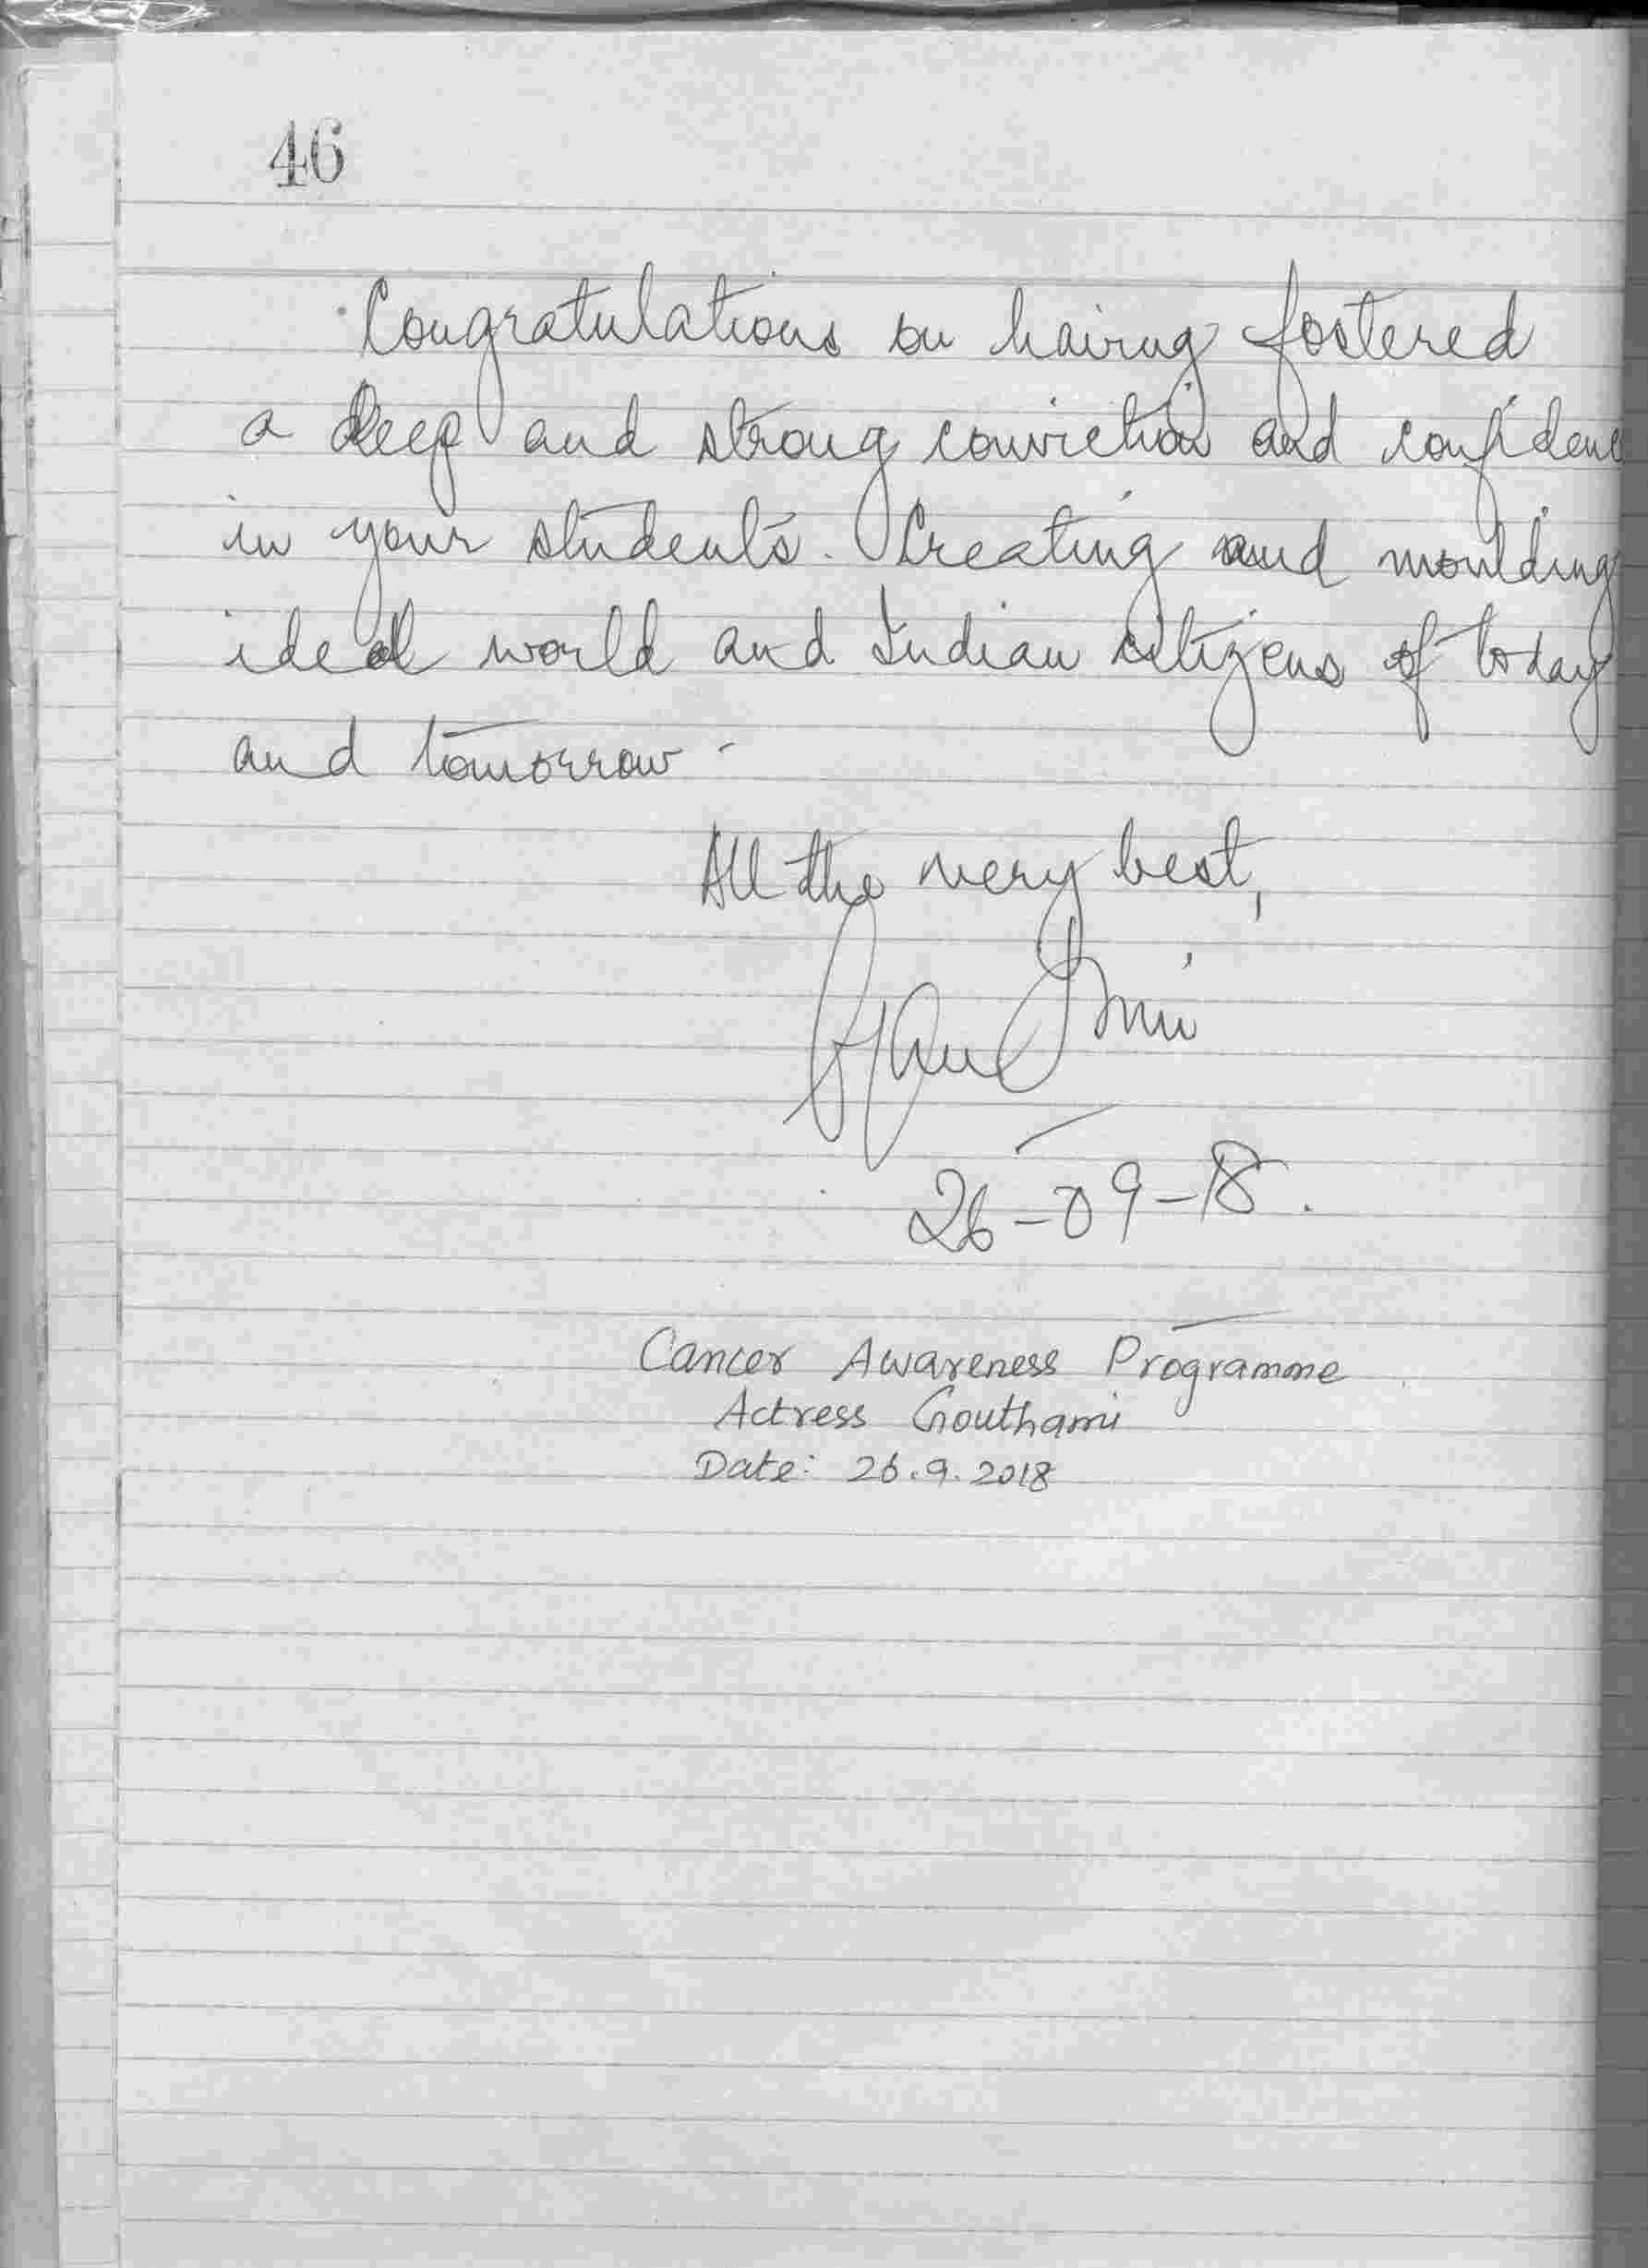 46
Congratulations on having fostered
a deep and strong conviction and confidenc
in your students. Creating and moulding
ideal world and Indian citizens of today
and tomorrow.
All the very best,
26-09-18.
Cancer Awareness Programme
Actress Gouthami
Date: 26.9.2018